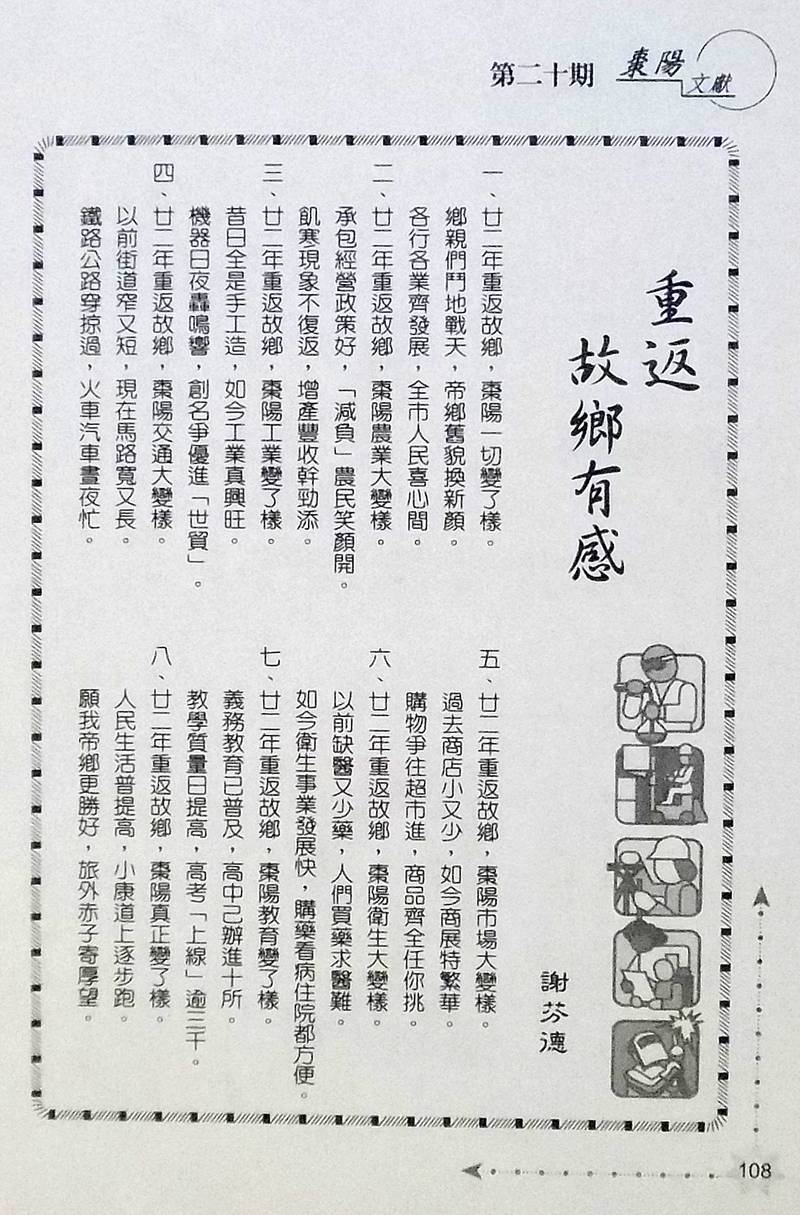 第二十期
棗陽
文獻
重返
故鄉有感
謝芬德
一、廿二年重返故鄉，棗陽一切變了樣。
鄉親們鬥地戰天，帝鄉舊貌換新顏。
各行各業齊發展，全市人民喜心間。
二、廿二年重返故鄉，棗陽農業大變樣。
承包經營政策好，「減負」農民笑顏開。
飢寒現象不復返，增產豐收幹勁添。
三、廿二年重返故鄉，棗陽工業變了樣。
昔日全是手工造，如今工業真興旺。
機器日夜轟鳴響，創名爭優進「世貿」。
四、廿二年重返故鄉，棗陽交通大變樣。
以前街道窄又短，現在馬路寬又長。
鐵路公路穿掠過，火車汽車晝夜忙。
五、廿二年重返故鄉，棗陽市場大變樣。
過去商店小又少，如今商展特繁華。
購物爭往超市進，商品齊全任你挑。
六、廿二年重返故鄉，棗陽衛生大變樣。
以前缺醫又少藥，人們買藥求醫難。
如今衛生事業發展快，購藥看病住院都方便。
七、廿二年重返故鄉，棗陽教育變了樣。
義務教育已普及，高中己辦進十所。
教學質量日提高，高考「上線」逾三千。
八、廿二年重返故鄉，棗陽真正變了樣。
人民生活普提高，小康道上逐步跑。
願我帝鄉更勝好，旅外赤子寄厚望。
108